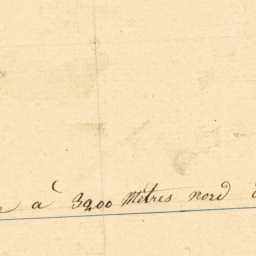 à 3200 Mètres nord